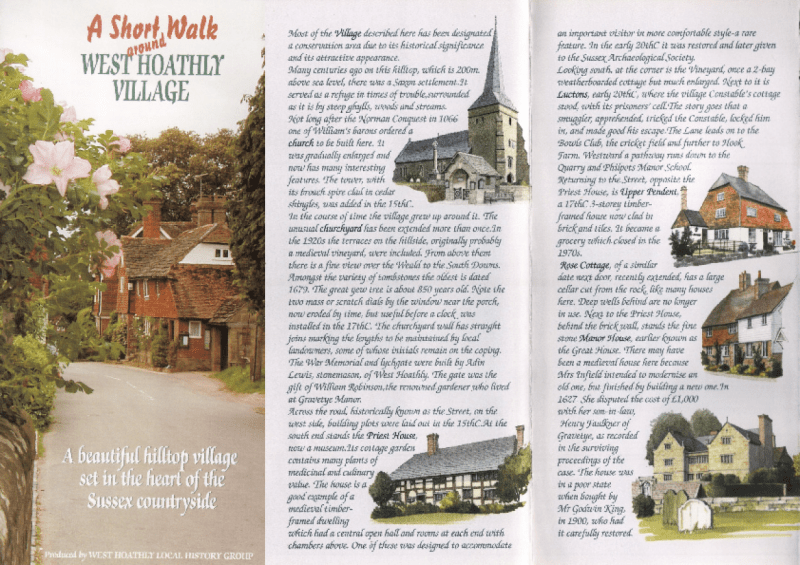 A Short Walk
around
WEST HOATHLY
VILLAGE
A beautiful hilltop village
set in the heart of the
Sussex countryside
Produced by WEST HOATHLY LOCAL HISTORY GROUP
Most of the Village described here has been designated
a conservation area due to its historical significance
and its attractive appearance.
Many centuries ago on this hilltop, which is 200m.
above sea level, there was a Saxon settlement. It
served as a refuge in times of trouble, surrounded
as it is by steep ghylls, woods and streams.
Not long after the Norman Conquest in 1066
one of William's barons ordered a
church to be built here. It
was gradually enlarged and
now has many interesting
features. The tower, with
its broach spire clad in cedar
shingles, was added in the 15thC.
In the course of time the village grew up around it. The
unusual churchyard has been extended more than once. In
the 1920s the terraces on the hillside, originally probably
a medieval vineyard, were included. From above them
there is a fine view over the Weald to the South Downs.
Amongst the variety of tombstones the oldest is dated
1679. The great yew tree is about 850 years old. Note the
two mass or scratch dials by the window near the porch,
now eroded by time, but useful before a clock was
installed in the 17thC. The churchyard wall has straight
joins marking the lengths to be maintained by local
landowners, some of whose initials remain on the coping.
The War Memorial and lychgate were built by Adin
Lewis, stonemason, of West Hoathly. The gate was the
gift of William Robinson, the renowned gardener who lived
at Gravetye Manor.
Across the road, historically known as the Street, on the
west side, building plots were laid out in the 15thC. At the
south end stands the Priest House,
now a museum. Its cottage garden
contains many plants of
medicinal and culinary
value. The house is a
good example of a
medieval timber-
framed dwelling
which had a central open hall and rooms at each end with
chambers above. One of these was designed to accommodate
an important visitor in more comfortable style-a rare
feature. In the early 20thC it was restored and later given
to the Sussex Archaeological Society.
Looking south, at the corner is the Vineyard, once a 2-bay
weatherboarded cottage but much enlarged. Next to it is
Luctons, early 20thC, where the village Constable's cottage
stood, with its prisoners' cell. The story goes that a
smuggler, apprehended, tricked the Constable, locked him
in, and made good his escape. The Lane leads on to the
Bowls Club, the cricket field and further to Hook
Farm. Westward a pathway runs down to the
Quarry and Philpots Manor School.
Returning to the Street, opposite the
Priest House, is Upper Pendent,
a 17thC 3-storey timber-
framed house now clad in
brick and tiles. It became a
grocery which closed in the
1970s.
Rose Cottage, of a similar
date next door, recently extended, has a large
cellar cut from the rock, like many houses
here. Deep wells behind are no longer
in use. Next to the Priest House,
behind the brick wall, stands the fine
stone Manor House, earlier known as
the Great House. There may have
been a medieval house here because
Mrs Infield intended to modernise an
old one, but finished by building a new one. In
1627 She disputed the cost of £1,000
with her son-in-law,
Henry Faulkner of
Gravetye, as recorded
in the surviving
proceedings of the
case. The house was
in a poor state
when bought by
Mr Godwin King,
in 1900, who had
it carefully restored.